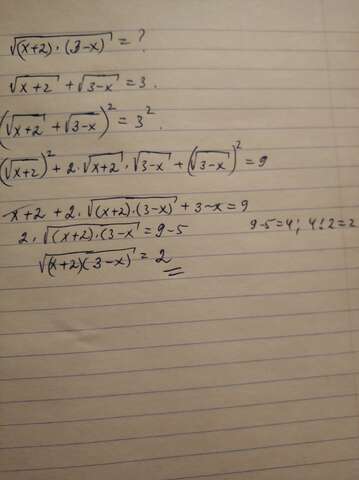 √(x+2)·(3-x) = ?
√x+2 + √3-x = 3.
(√x+2 + √3-x)² = 3².
(√x+2)² + 2·√x+2·√3-x + (√3-x)² = 9
x+2 + 2·√(x+2)·(3-x) + 3-x = 9
2·√(x+2)·(3-x = 9-5 9-5=4; 4:2=2
√(x+2)(3-x) = 2